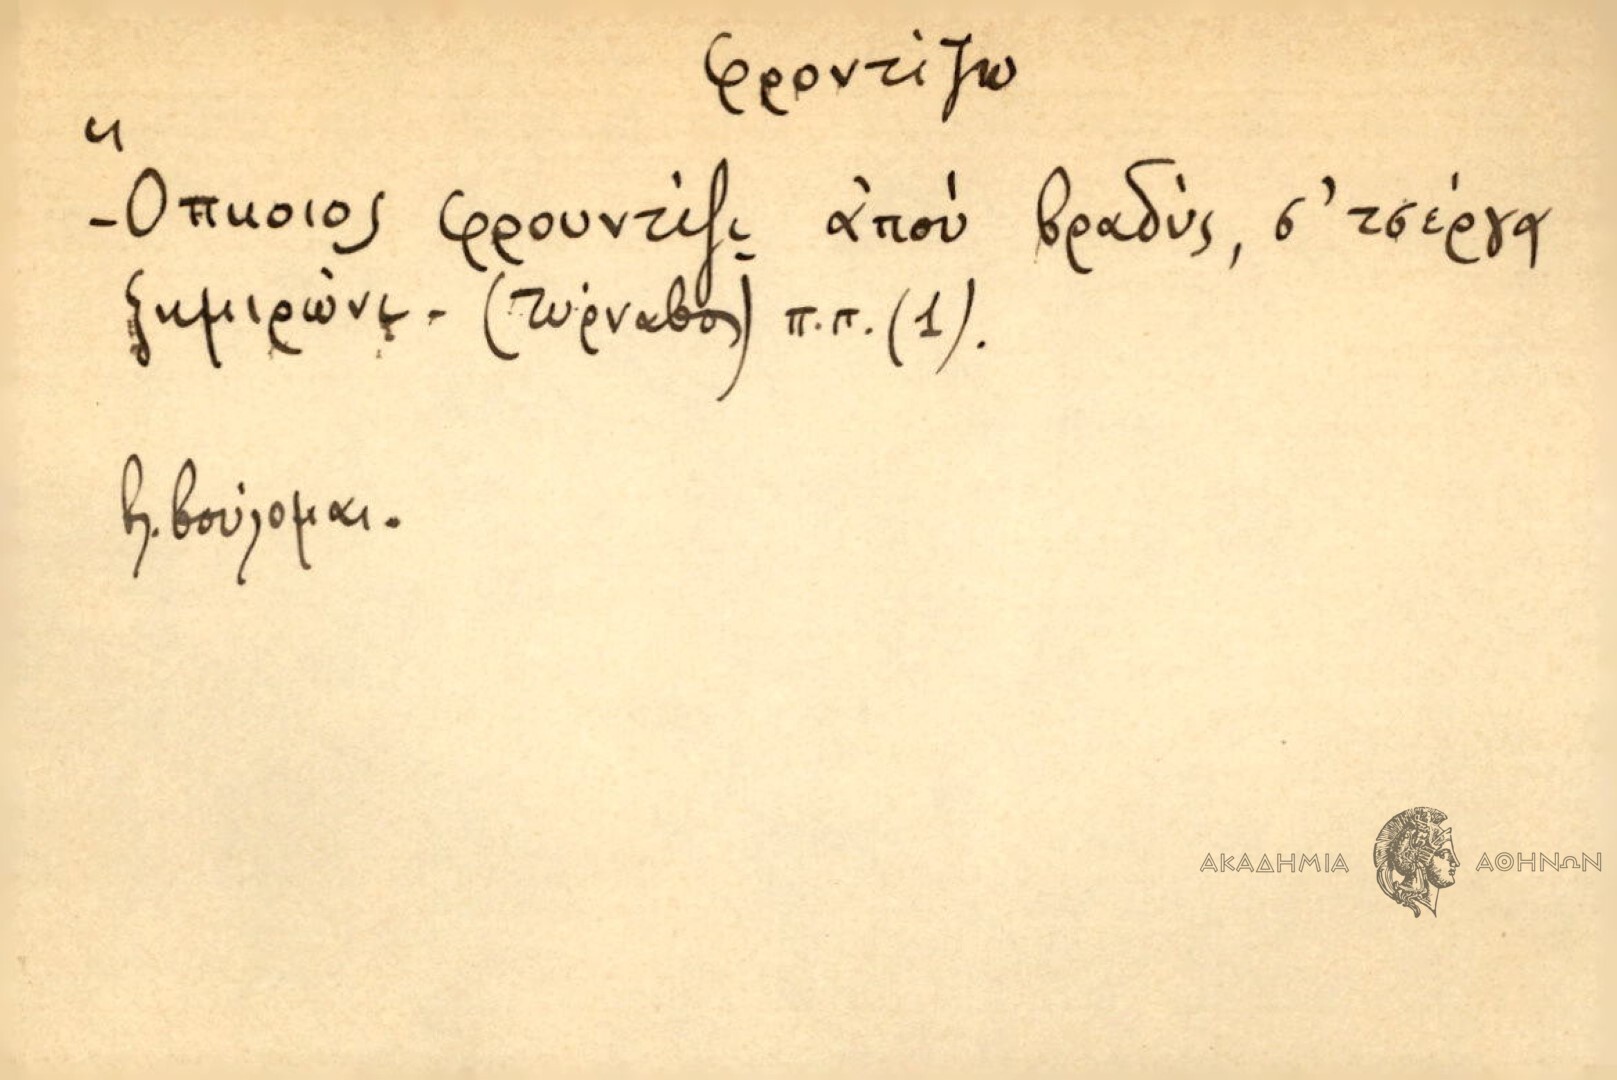 φροντίζω
"
-Οπκοιος φρουντίζι ἀπού βραδύς, σ' τσέργα
ξημιρώνι - (Τύρναβος) π.π. (1).
βλ. βούλομαι.
ΑΚΑΔΗΜΙΑ ΑΘΗΝΩΝ